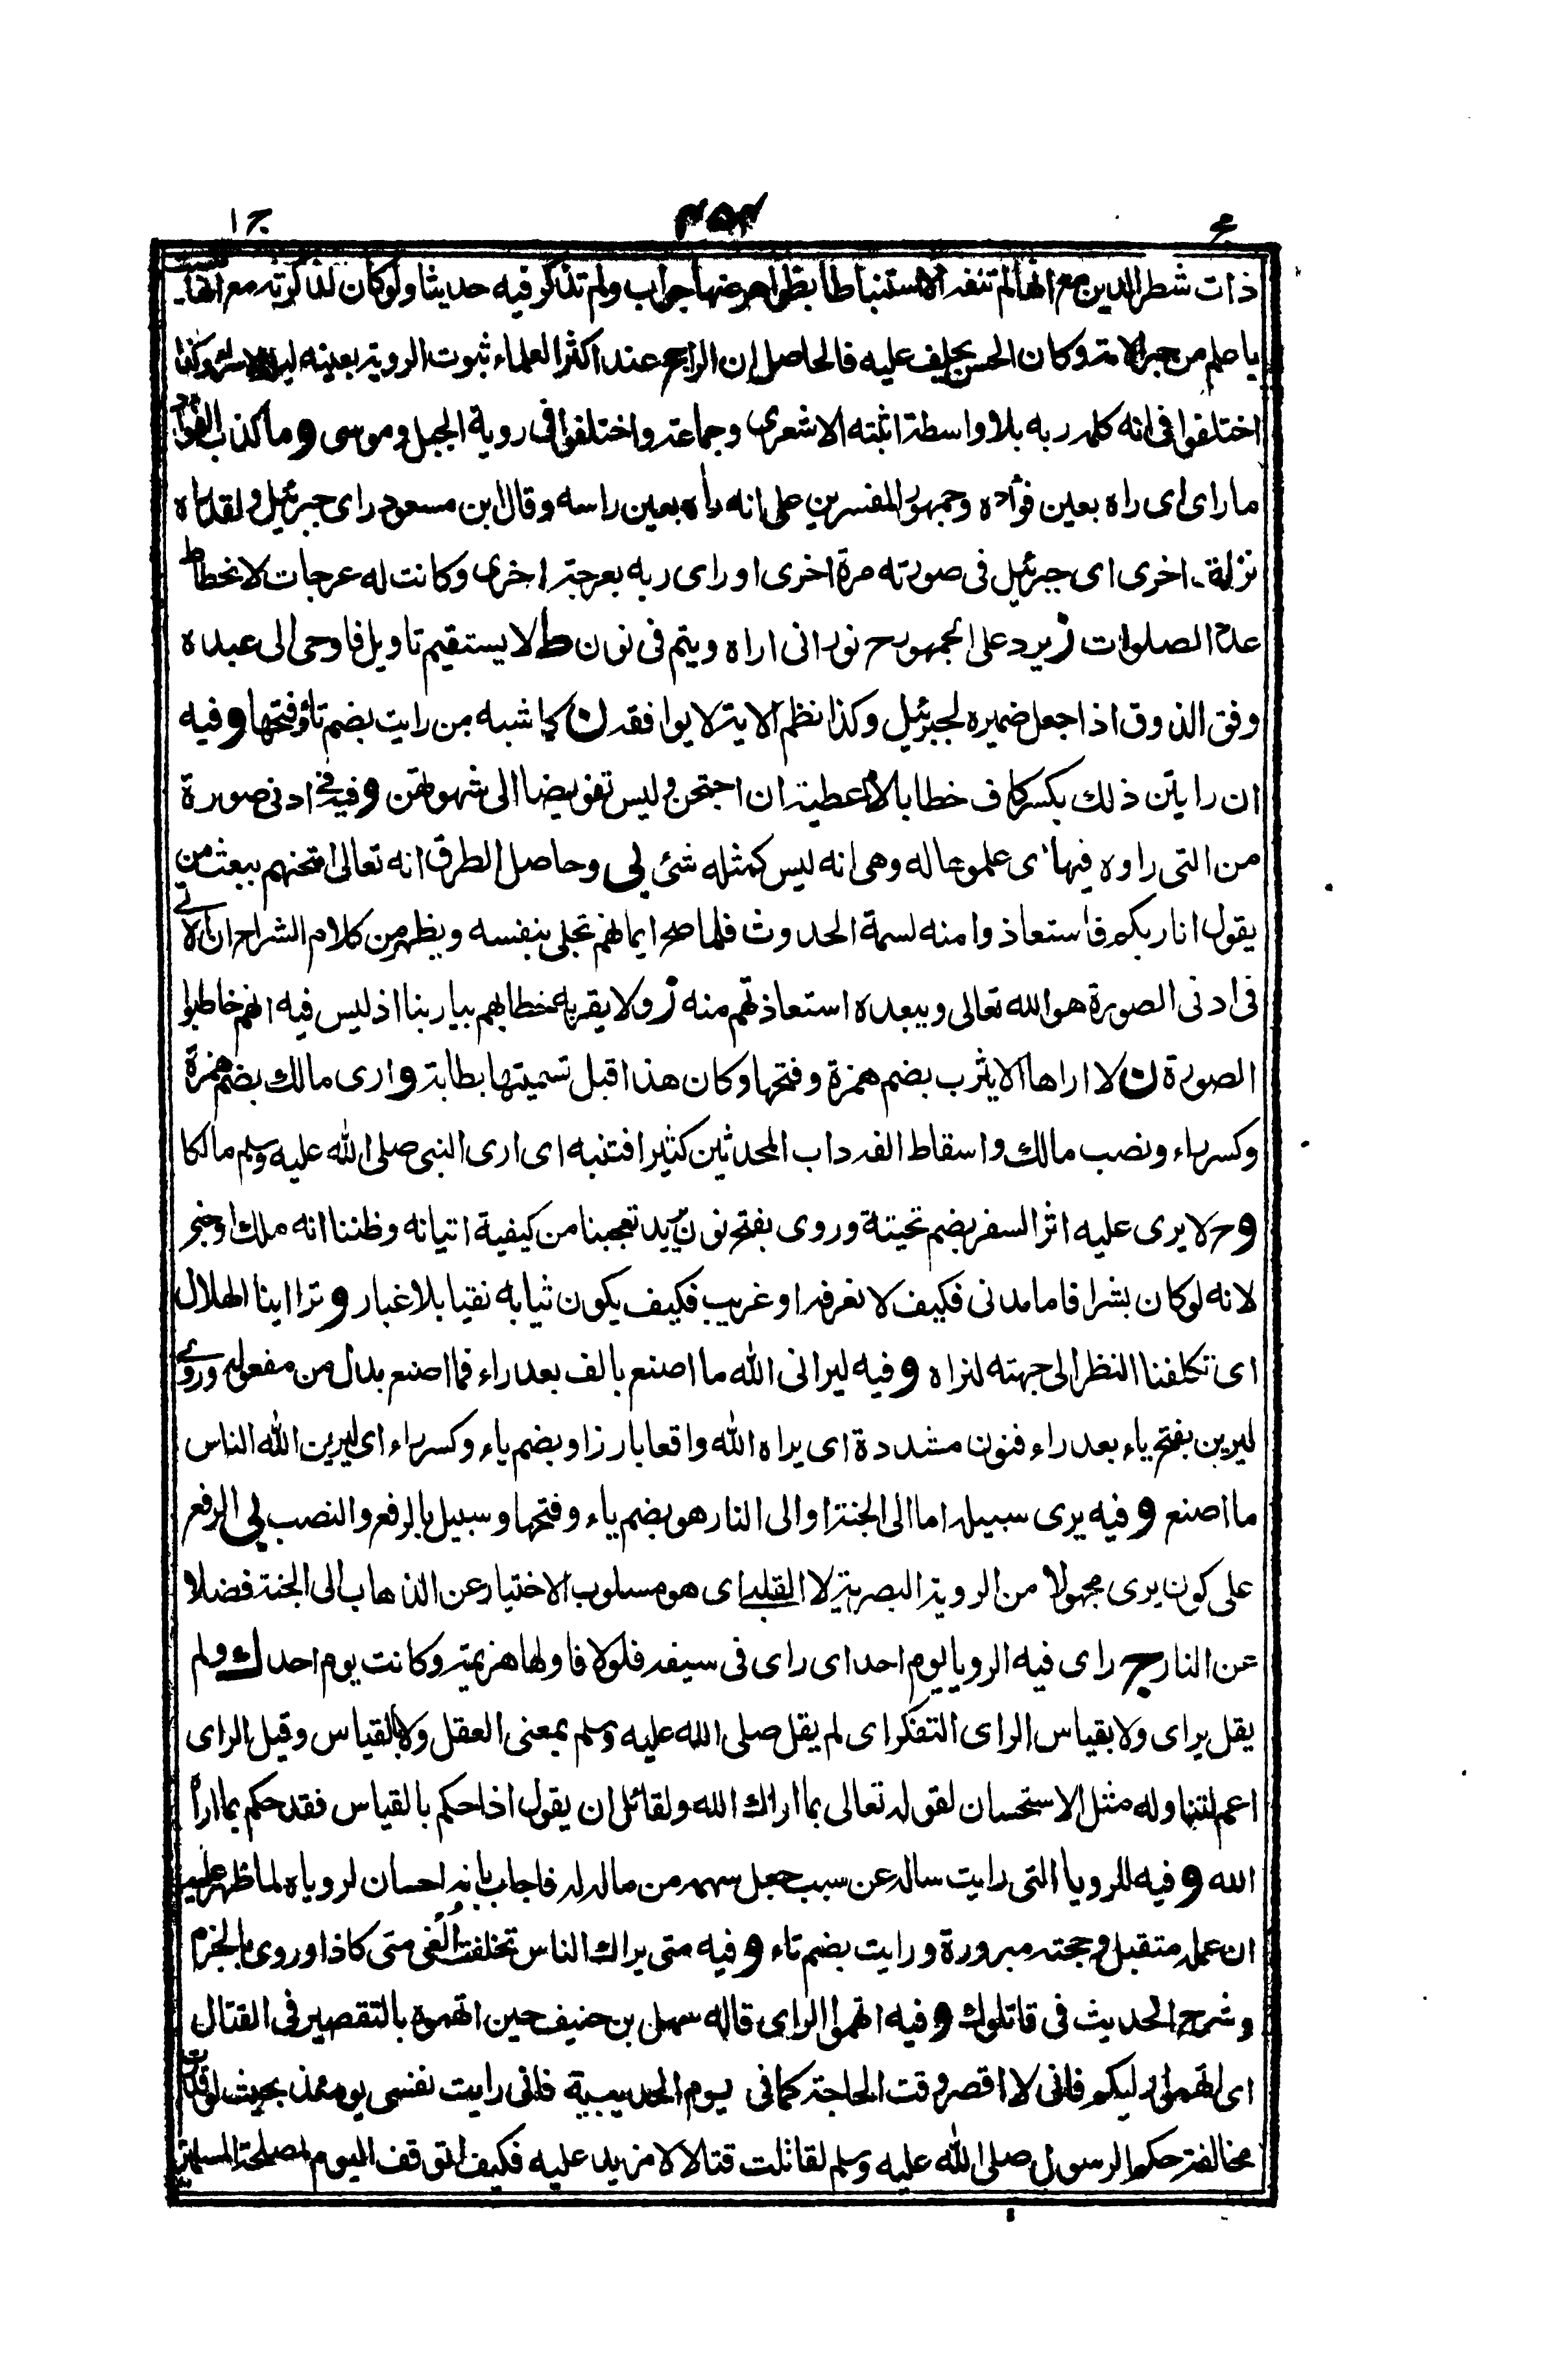 ج ١
٤٥٤
ذات شطر الدين مع انها لم تنفه الا استنباطا بظواهر ضها جواب ولم تذكر فيه حديثا ولو كان لذكرته مع انها ليست
باعلم من حبر الامة وكان الحسن يحلف عليه فالحاصل ان الراجح عند اكثر العلماء ثبوت الروية بعينه ليلة الاسراء وكذا
اختلفوا في انه كلمه ربه بلا واسطة اثبته الاشعري وجماعة واختلفوا في روية الجبل وموسى و ما كذب الفواد
ما راى اى راه بعين فؤاده وجمهور المفسرين على انه راه بعين راسه وقال ابن مسعود راى جبرئيل ولقد راه
نزلة اخرى اى جبرئيل في صورته مرة اخرى او راى ربه بعرجة اخرى وكانت له عرجات لانحطاط
عدد الصلوات ز يرد على الجمهور ح نور انى اراه ويتم في نون ط لا يستقيم تاويل فاوحى الى عبده
وفق الذوق اذا جعل ضميره لجبرئيل وكذا نظم الاية لا يوافقه ن كاشبه من رايت بضم تاء وفتحها و فيه
ان رايتن ذلك بكسر كاف خطاب لام عطية ان احتجن وليس تفويضا الى شهوتهن و فيه في ادنى صورة
من التى راوه فيها اى علموها له وهى انه ليس كمثله شئ لي وحاصل الطرق انه تعالى امتحنهم ببعث من
يقول انا ربكم فاستعاذوا منه لسمة الحدوث فلما صح ايمانهم تجلى بنفسه ويظهر من كلام الشراح ان الاتي
في ادنى الصورة هو الله تعالى ويبعده استعاذتهم منه ز ولا يقربه خطابهم بيا ربنا اذ ليس فيه انهم خاطبوا
الصورة ن لا اراها الا يثرب بضم همزة وفتحها وكان هذا قبل تسميتها بطابة و ارى مالك بضم همزة
وكسر راء ونصب مالك واسقاط الفه داب المحدثين كثيرا فتنبه اى ارى النبى صلى الله عليه وسلم مالكا
و ح لا يرى عليه اثر السفر بضم تحتية وروى بفتح نون يريد تعجبنا من كيفية اتيانه وظننا انه ملك او جني
لانه لو كان بشرا فاما مدني فكيف لا نعرفه او غريب فكيف يكون ثيابه نقيا بلا غبار و تراءينا الهلال
اى تكلفنا النظر الى جهته لنراه و فيه ليرانى الله ما اصنع بالف بعد راء فما اصنع بدل من مفعوله وروي
ليرين بفتح ياء بعد راء فنون مشددة اى يراه الله واقعا بارزا وبضم ياء وكسر راء اى ليرين الله الناس
ما اصنع و فيه يرى سبيله اما الى الجنة او الى النار هو بضم ياء وفتحها وسبيل بالرفع والنصب لي الرفع
على كون يرى مجهولا من الروية البصرية لا القلبية اى هو مسلوب الاختيار عن الذهاب الى الجنة فضلا
عن النار ج راى فيه الرويا يوم احد اى راى في سيفه فلولا فاولها هزيمة وكانت يوم احد ك ولم
يقل براى ولا بقياس الراى التفكر اى لم يقل صلى الله عليه وسلم بمعنى العقل ولا بالقياس وقيل الراى
اعم لتناوله مثل الاستحسان لقوله تعالى بما اراك الله ولقائل ان يقول اذا حكم بالقياس فقد حكم بما اراه
الله و فيه للرويا التى رايت ساله عن سبب جعل سهم من ماله له فاجاب بانه احسان لروياه لما ظهر عليه
ان عمله متقبل وحجته مبرورة ورايت بضم تاء و فيه متى يراك الناس تخلفت الغى متى كاذا وروى بالجزم
وشرح الحديث في قاتلوك و فيه اتهموا الراى قاله سهل بن حنيف حين اتهموه بالتقصير في القتال
اى اتهموا رايكم فانى لا اقصر وقت الحاجة كما فى يوم الحديبية فانى رايت نفسى يومئذ بحيث لو قدرت
مخالفة حكم الرسول صلى الله عليه وسلم لقاتلت قتالا لا مزيد عليه فكيف اتوقف اليوم لمصلحة المسلمين